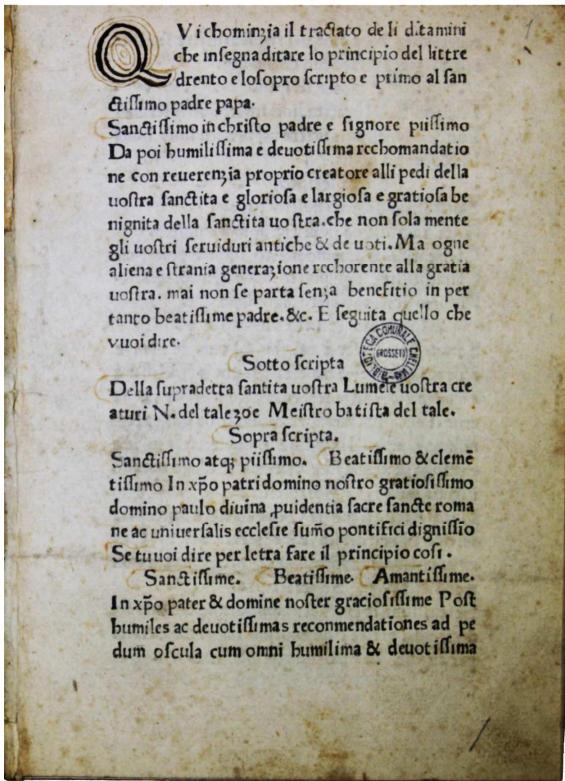 1
QVi chominzia il tractato de li ditamini
che insegna ditare lo principio del littre
drento e losopro scripto e primo al san
ctissimo padre papa.
Sanctissimo in christo padre e signore piissimo
Da poi humilissima e deuotissima rechomandatio
ne con reuerenzia proprio creatore alli pedi della
uostra sanctita e gloriosa e largiosa e gratiosa be
nignita della sanctita uo stra. che non sola mente
gli uostri seruiduri antiche & de uoti. Ma ogne
aliena e strania generazione rechorente alla gratia
uostra. mai non se parta senza benefitio in per
tanto beatissime padre. &c. E seguita quello che
vuoi dire.
Sotto scripta
BIBLIOTECA COMUNALE CHELLIANA GROSSETO
Della supradetta santita uostra Lumele uostra cre
aturi N. del tale zoe Meistro batista del tale.
Sopra scripta.
Sanctissimo atq; piissimo. Beatissimo & clemē
tissimo In xp̄o patri domino nostro gratiosissimo
domino paulo diuina ꝓuidentia sacre sancte roma
ne ac uniuersalis ecclesie sum̄o pontifici dignissīo
Se tu uoi dire per letra fare il principio cosi.
Sanctissime. Beatissime. Amantissime.
In xp̄o pater & domine noster graciosissime Post
humiles ac deuotissimas reconmendationes ad pe
dum oscula cum omni humilima & deuotissima
1